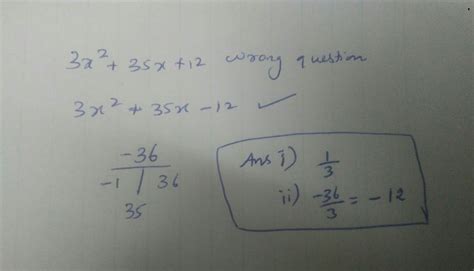 3x² + 35x + 12 wrong question
3x² + 35x - 12 ✓
-36
-1 | 36
35
Ans i) 1/3
ii) -36/3 = -12